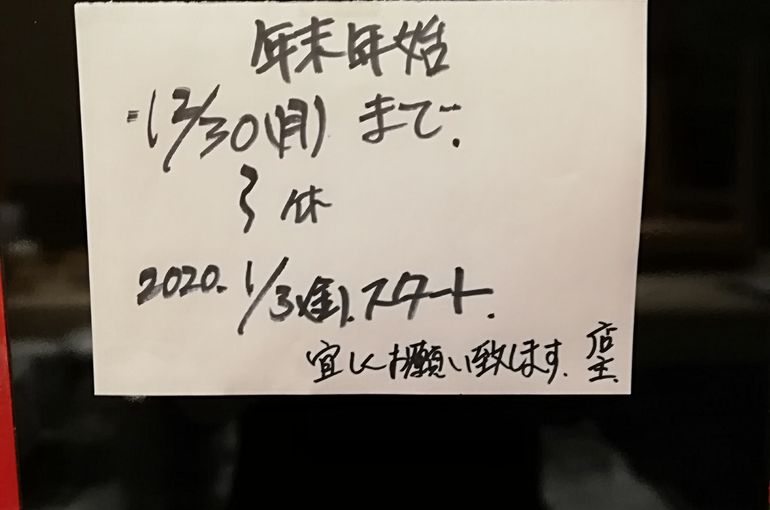 年末年始
12/30(月)まで.
〜休
2020. 1/3(金).スタート.
宜しくお願い致します. 店主.